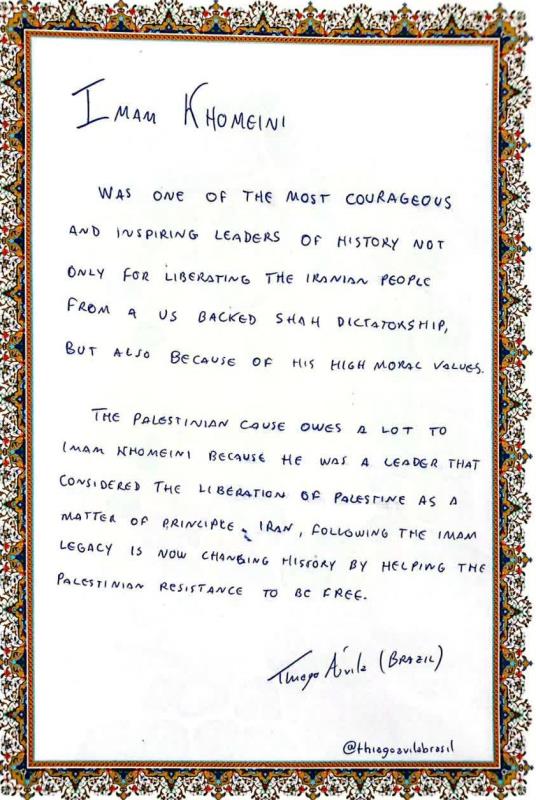 IMAM KHOMEINI
WAS ONE OF THE MOST COURAGEOUS
AND INSPIRING LEADERS OF HISTORY NOT
ONLY FOR LIBERATING THE IRANIAN PEOPLE
FROM A US BACKED SHAH DICTATORSHIP,
BUT ALSO BECAUSE OF HIS HIGH MORAL VALUES.
THE PALESTINIAN CAUSE OWES A LOT TO
IMAM KHOMEINI BECAUSE HE WAS A LEADER THAT
CONSIDERED THE LIBERATION OF PALESTINE AS A
MATTER OF PRINCIPLE. IRAN, FOLLOWING THE IMAM
LEGACY IS NOW CHANGING HISTORY BY HELPING THE
PALESTINIAN RESISTANCE TO BE FREE.
Thiago Ávila (BRAZIL)
@thiagoavilabrasil